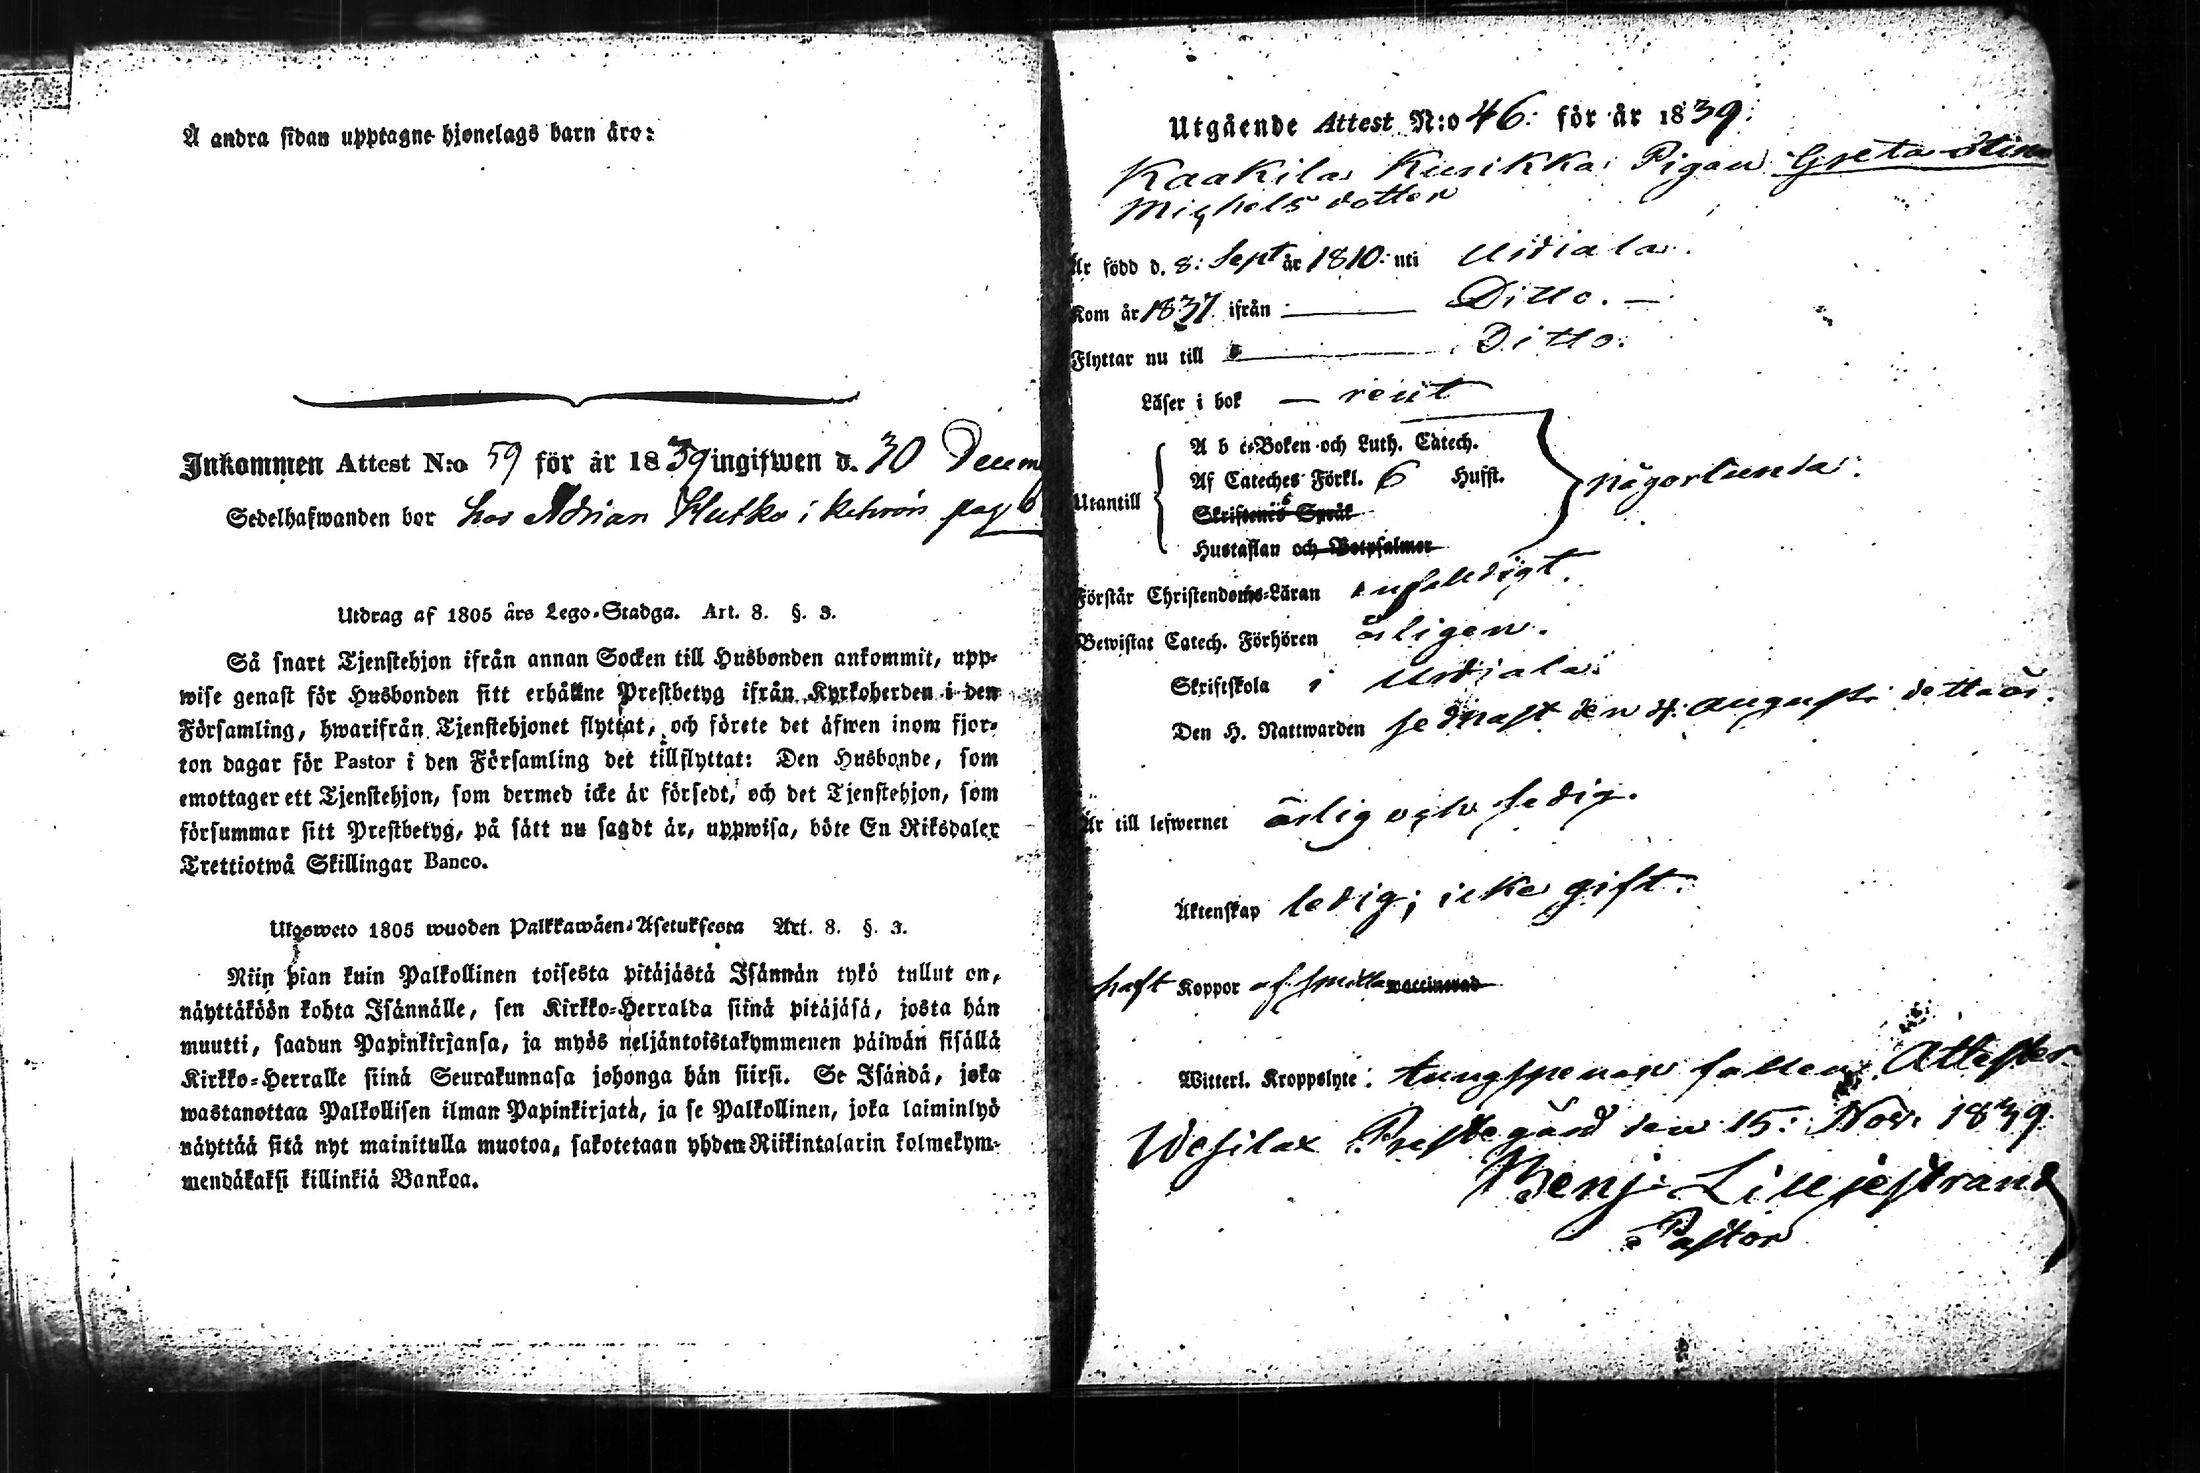 Å andra sidan upptagne hjonelags barn äro:
Inkommen Attest N:o 59 för år 1839 ingifwen d. 30 Decem
Sedelhafwanden bor hos Adrian Hutko i pag 6
Utdrag af 1805 års Lego-Stadga. Art. 8. §. 3.
Så snart Tjenstehjon ifrån annan Socken till Husbonden ankommit, upp-
wise genast för Husbonden sitt erhållne Prestbetyg ifrån Kyrkoherden i den
Församling, hwarifrån Tjenstehjonet flyttat, och förete det äfwen inom fjor-
ton dagar för Pastor i den Församling det tillflyttat: Den Husbonde, som
emottager ett Tjenstehjon, som dermed icke är försedt, och det Tjenstehjon, som
försummar sitt Prestbetyg, på sätt nu sagdt är, uppwisa, böte En Riksdaler
Trettiotwå Skillingar Banco.
Ulosweto 1805 wuoden Palkkawäen-Asetuksesta Art. 8. §. 3.
Niin pian kuin Palkollinen toisesta pitäjästä Isännän tykö tullut on,
näyttäköön kohta Isännälle, sen Kirkko-Herralda siinä pitäjäsä, josta hän
muutti, saadun Papinkirjansa, ja myös neljäntoistakymmenen päiwän sisällä
Kirkko-Herralle siinä Seurakunnasa johonga hän siirsi. Se Isändä, joka
wastanottaa Palkollisen ilman Papinkirjatä, ja se Palkollinen, joka laiminlyö
näyttää sitä nyt mainitulla muotoa, sakotetaan yhden Riikintalarin kolmekym-
mendäkaksi killinkiä Bankoa.
Utgående Attest N:o 46: för år 1839:
Kaakila Kusikka Pigan Greta Stina
Michelsdotter
Är född d. 8: Sept år 1810: uti Urdiala.
Kom år 1837 ifrån Ditto. —
Flyttar nu till Ditto.
Läser i bok — rent
A b c-Boken och Luth. Catech.
Af Cateches Förkl. 6 Hufst.
Utantill någorlunda.
Skriftenes Språk
Hustaflan och Botpsalmer
Förstår Christendoms-Läran enfaldigt.
Bewistat Catech. Förhören årligen.
Skriftskola i Urdiala.
Den H. Nattwarden sednast den 4: Augusti detta år.
Är till lefwernet ärlig och sedig.
Äktenskap ledig; icke gift.
haft Koppor af smitta waccinerad
Witterl. Kroppslyte: tungspenan fallen. Attester
Wesilax Prestegård den 15: Nov. 1839.
Benj: Lilljestrand
Pastor